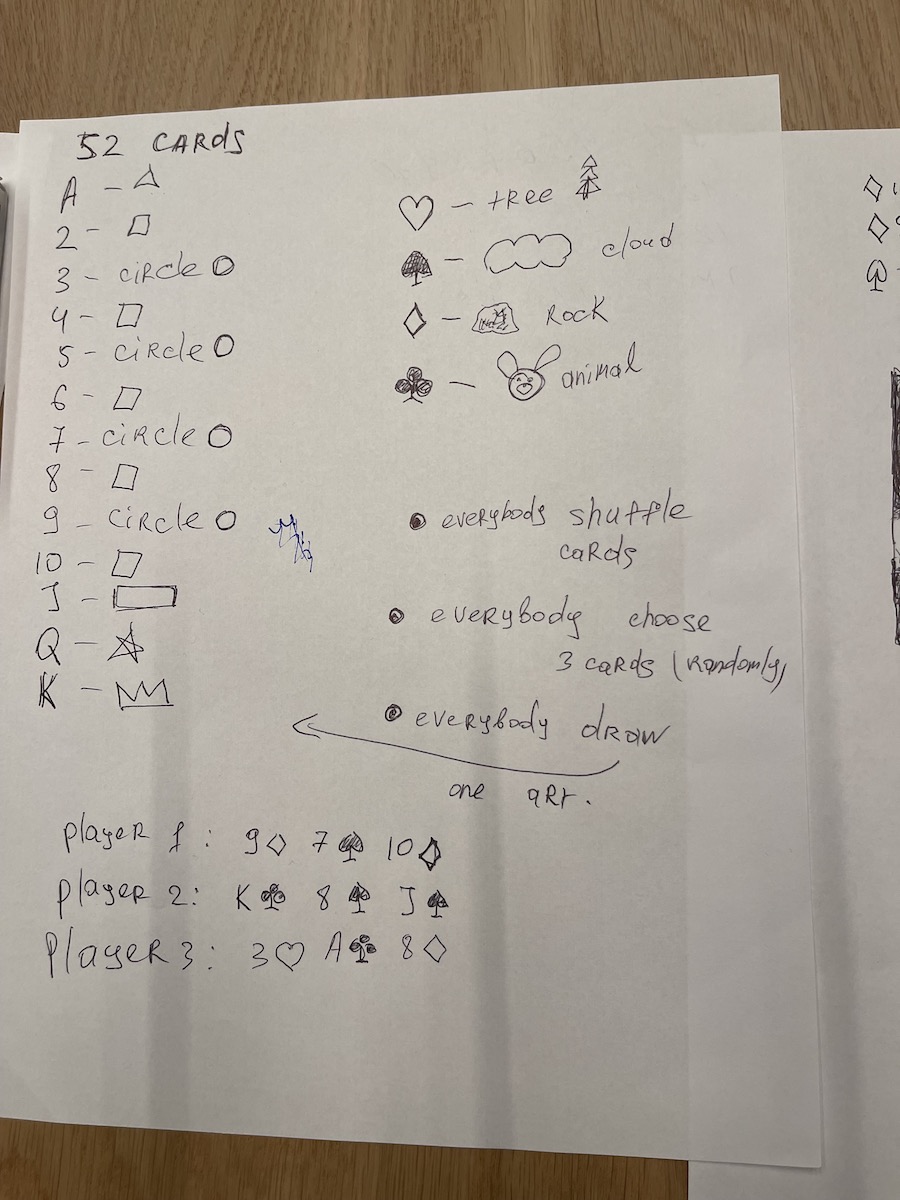 52 CARdS
A -
2 -
3 - ciRcle
4 -
5 - ciRcle
6 -
7 - ciRcle
8 -
9 - ciRcle
10 -
J -
Q -
K -
♡ - tRee
♠ - cloud
♢ - Rock
♣ - aniMal
• everybody shuffle
caRds
• eveRybody choose
3 caRds (Randomly)
• eveRybody dRaw
one aRt.
playeR 1 : 9♢ 7♠ 10♢
playeR 2: K♣ 8♠ J♠
PlayeR 3: 3♡ A♣ 8♢